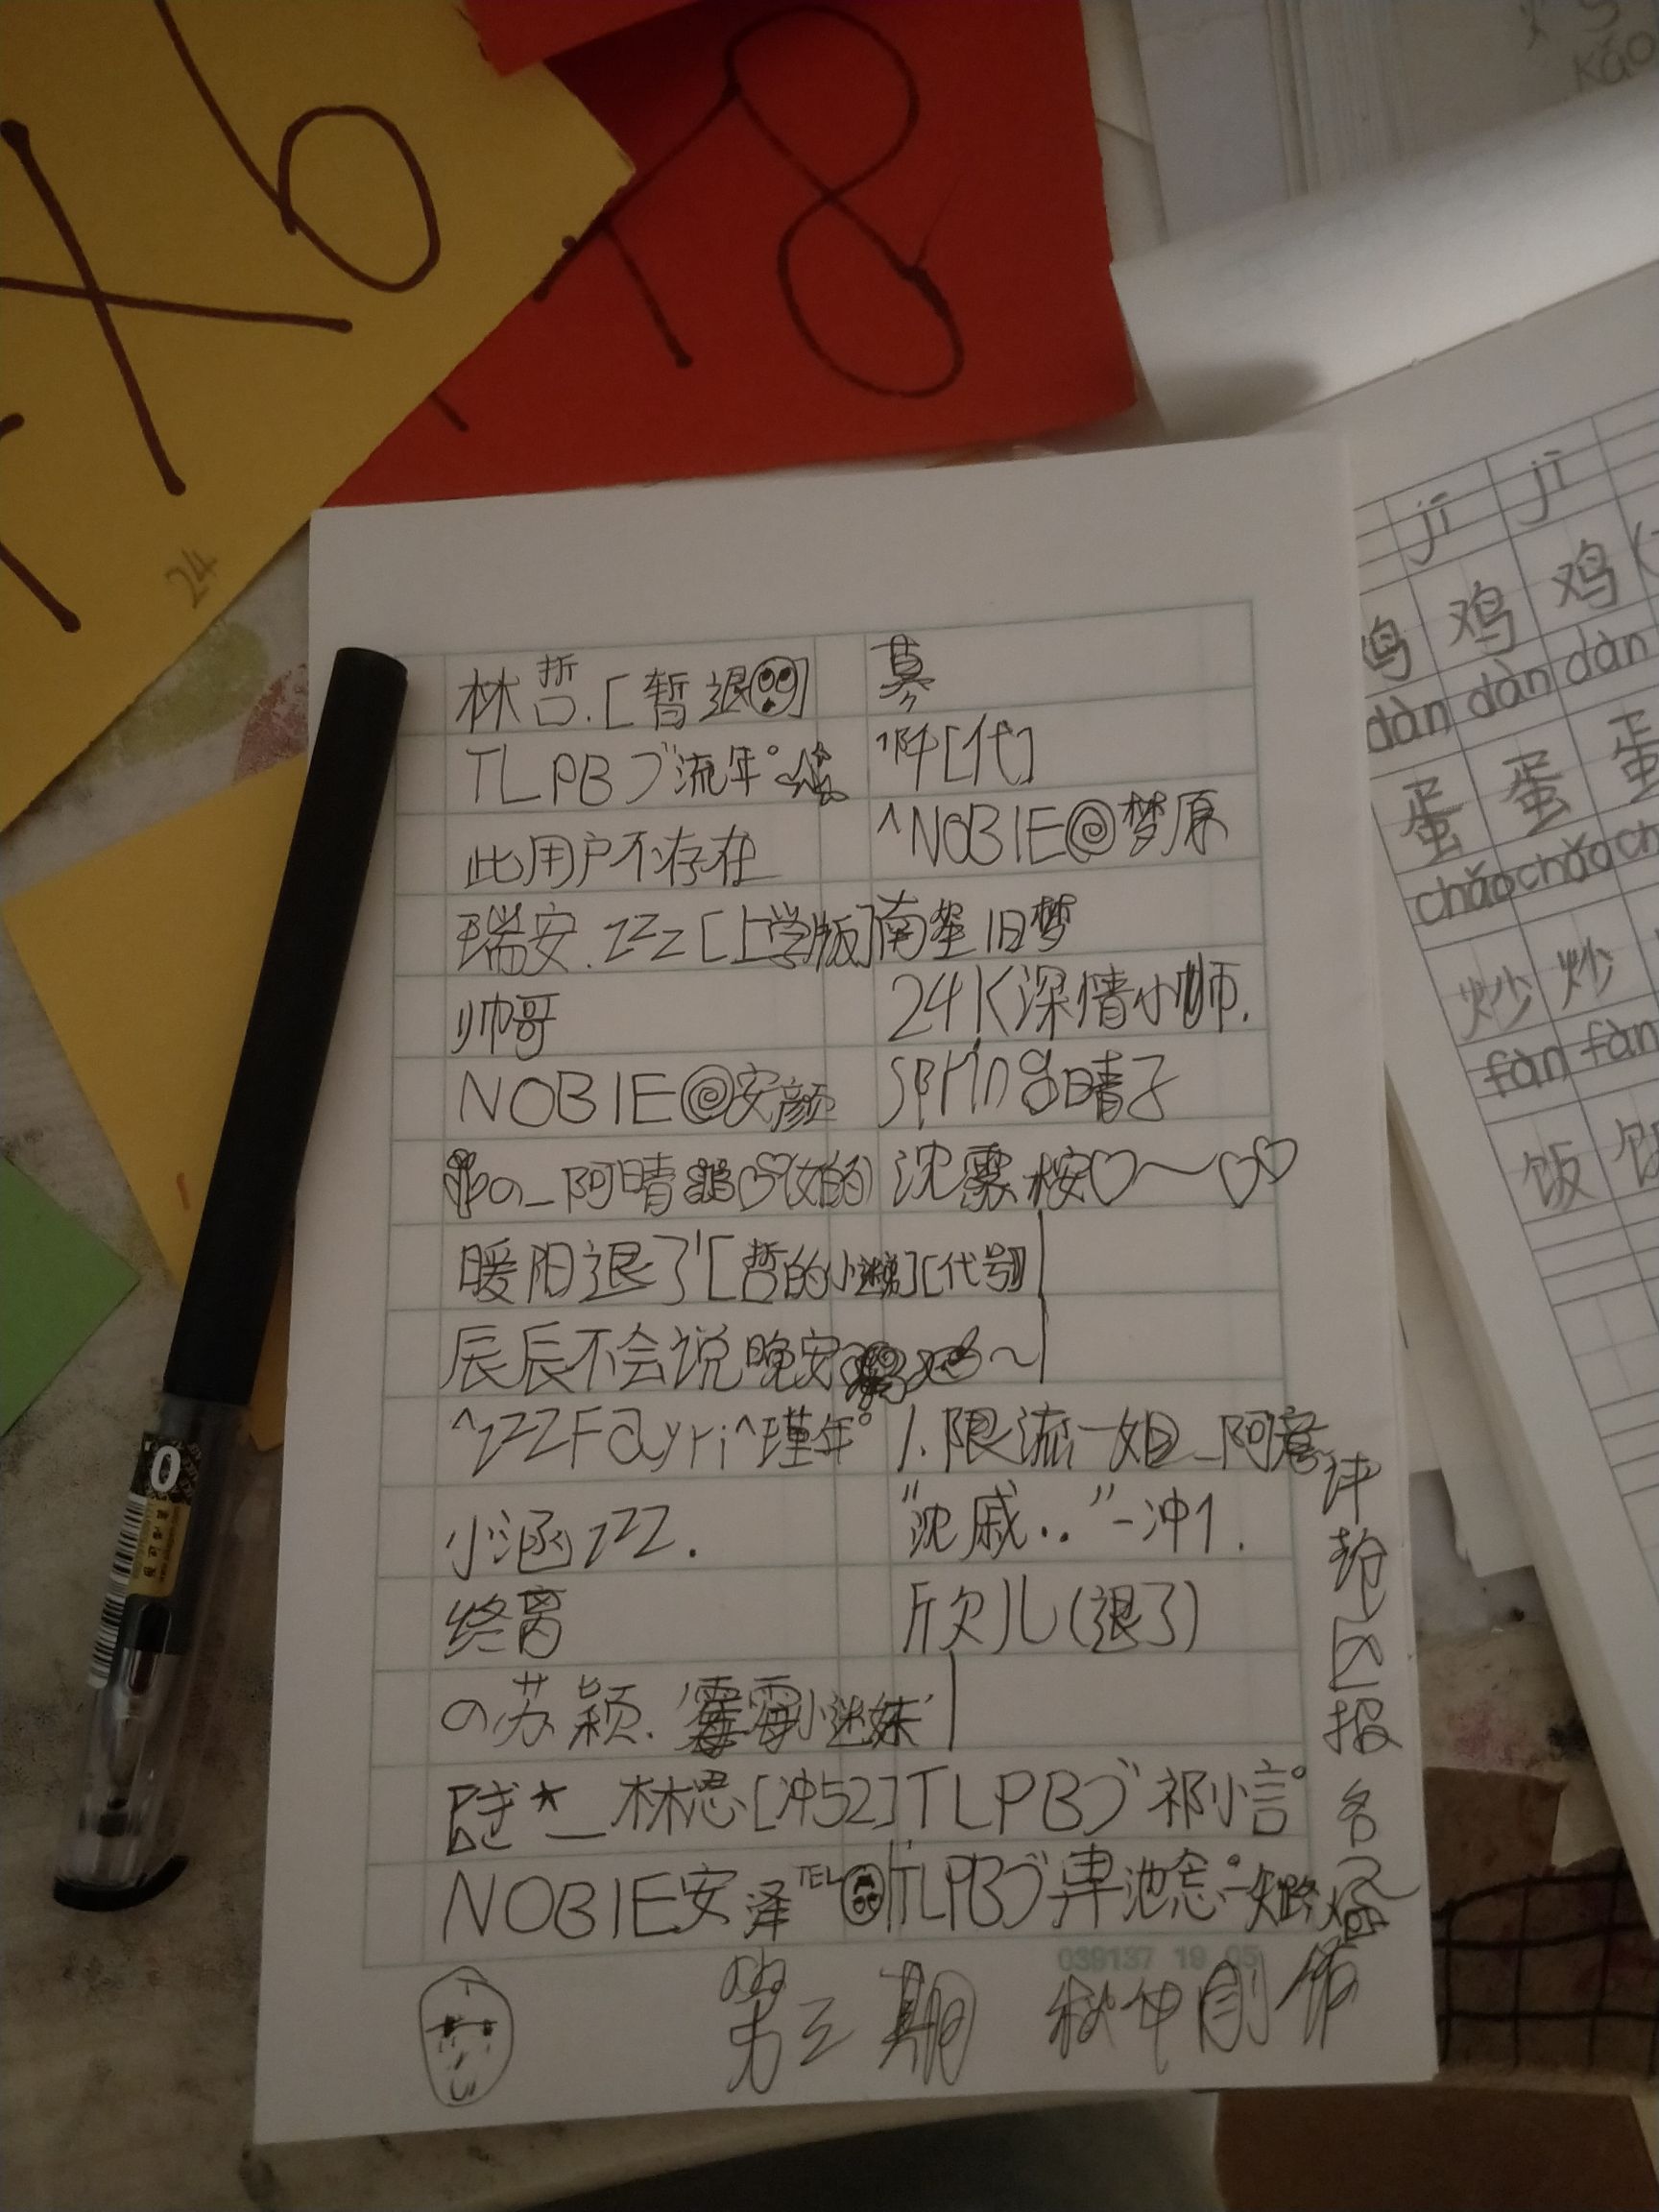 X6
78
24
kǎo
jī jī
鸡 鸡 鸡
dàn dàn dàn
蛋 蛋 蛋
chǎo chǎo ch
炒 炒
fàn fàn
饭 饭
林哲.[暂退]
慕
TLPBづ流年°
啊[代]
此用户不存在
^NOBIE@梦原
瑞安.zzz[上学版]
南笙旧梦
帅哥
24K深情小帅.
NOBIE@安颜
spring晴子
の_阿晴 (女的)
沈霖桉♡～♡♡
暖阳退了[哲的小迷弟][代号]
辰辰不会说晚安 ~
^zzzFayri^瑾年°
1.限流一姐_阿意
小涵zzz.
“沈戚..”-冲1.
终离
欣儿(退了)
の苏颖.‘霉霉小迷妹’
*_林思[冲52]
TLPBづ祁小言°
NOBIE安泽TEL
TLPBづ 池念°
评论区报名
第三期
0
039137 19 05